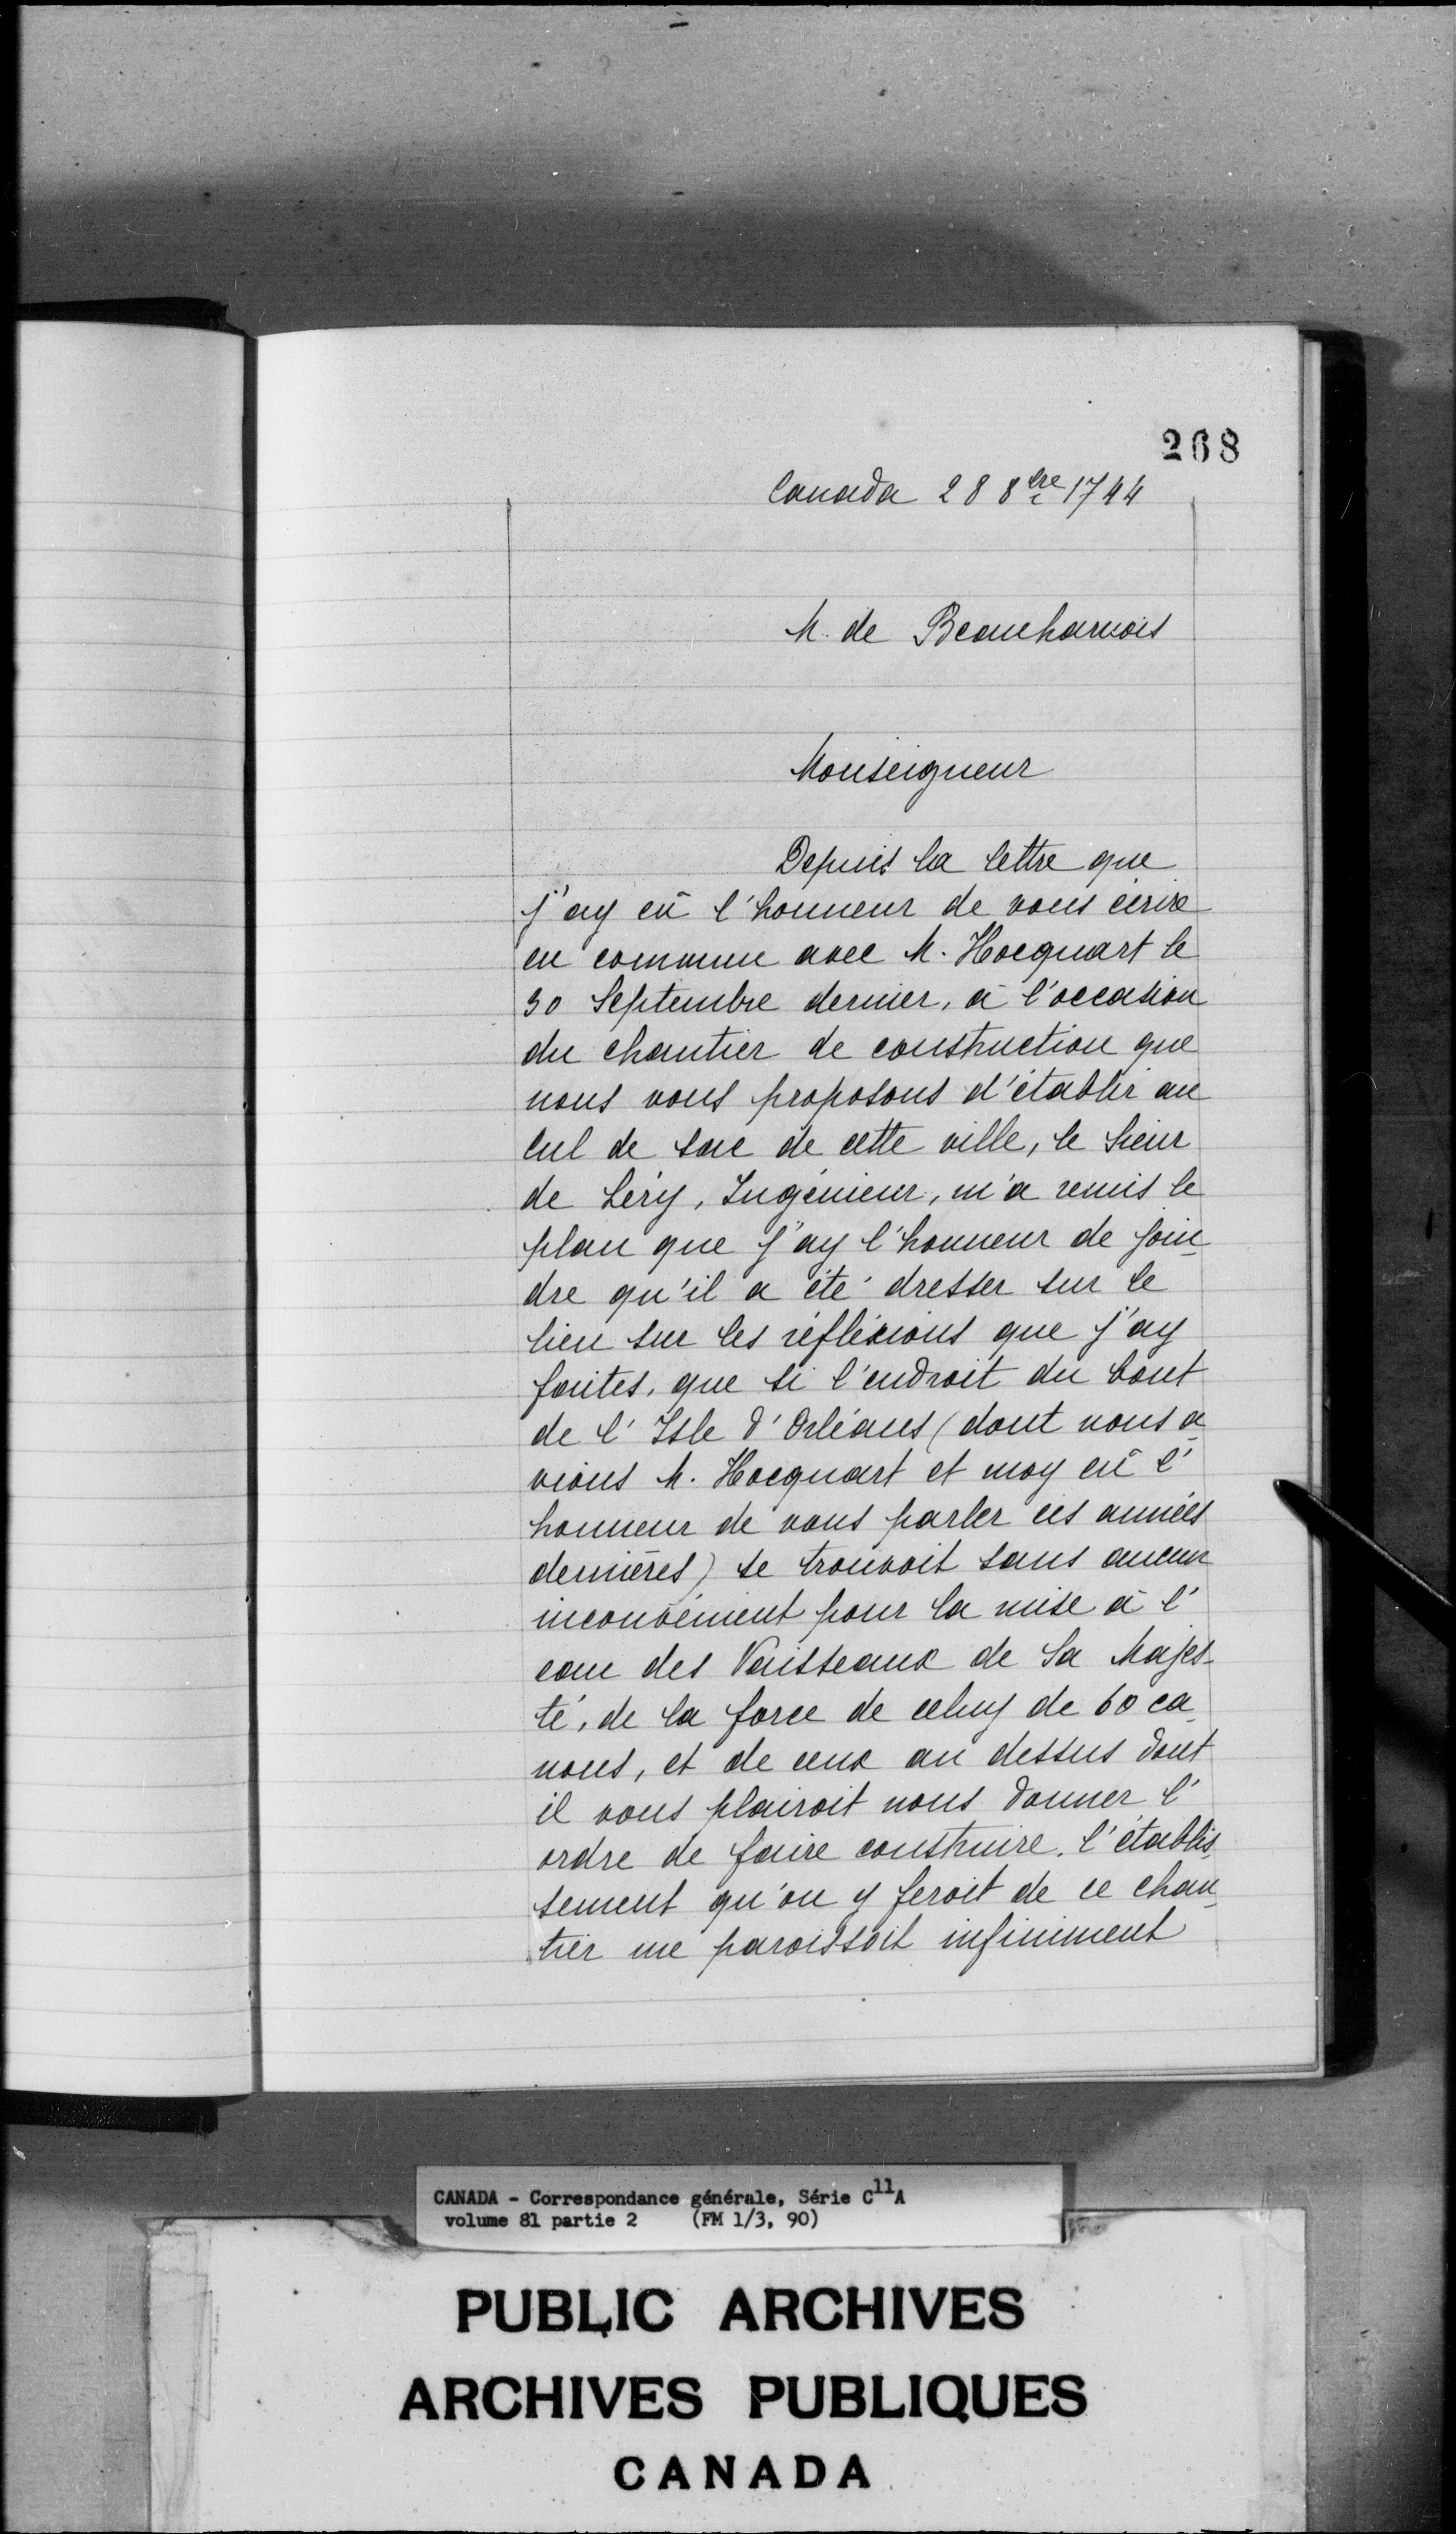 268
Canada 28 8bre 1744
M. de Beauharnois
Monseigneur
Depuis la lettre que
j'ay eû l'honneur de vous écrire
en commun avec M. Hocquart le
30 Septembre dernier, à l'occasion
du chantier de construction que
nous vous proposons d'établir au
Cul de sac de cette ville, le Sieur
de Léry, Ingénieur, m'a remis le
plan que j'ay l'honneur de join_
dre qu'il a été dresser sur le
lieu sur les réfléxions que j'ay
faites, que si l'endroit du bout
de l'Isle d'Orléans (dont nous a_
vions M. Hocquart et moy eû l'
honneur de vous parler ces années
dernières) se trouvoit sans aucun
inconvénient pour la mise à l'
eau des Vaisseaux de Sa Majes_
té, de la force de celuy de 60 ca_
nons, et de ceux au dessus dont
il vous plairoit nous donner l'
ordre de faire construire. l'établis_
sement qu'on y feroit de ce chan_
tier me paroissoit infiniment
CANADA - Correspondance générale, Série C11A
volume 81 partie 2 (FM 1/3, 90)
PUBLIC ARCHIVES
ARCHIVES PUBLIQUES
CANADA